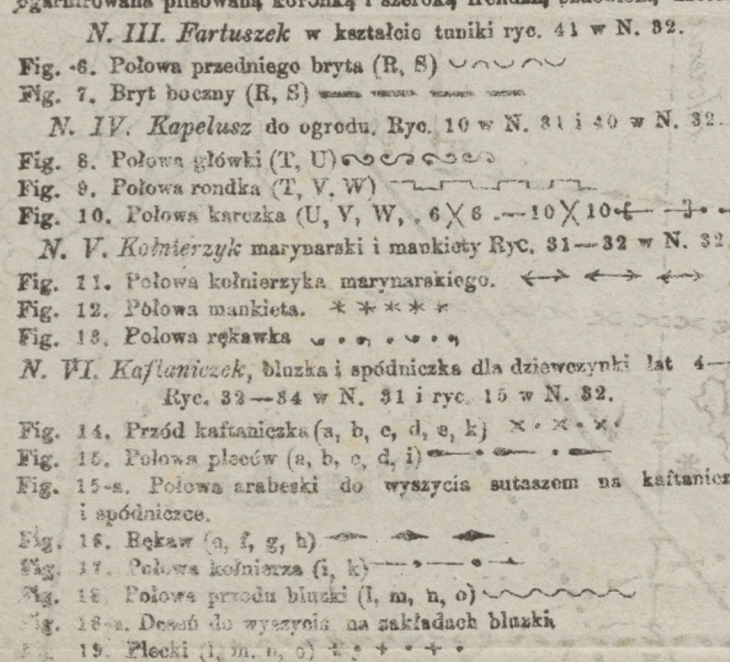 ogarnirowana plisowaną koronką i szeroką frendzlą
N. III. Fartuszek w kształcie tuniki ryc. 41 w N. 32.
Fig. 6. Połowa przedniego bryta (R, S)
Fig. 7. Bryt boczny (R, S)
N. IV. Kapelusz do ogrodu. Ryc. 10 w N. 31 i 40 w N. 32.
Fig. 8. Połowa główki (T, U)
Fig. 9. Połowa rondka (T, V, W)
Fig. 10. Połowa karczka (U, V, W, . 6 X 6 .—10 X 10
N. V. Kołnierzyk marynarski i mankiety Ryc. 31—32 w N. 32.
Fig. 11. Połowa kołnierzyka marynarskiego.
Fig. 12. Połowa mankieta.
Fig. 13. Połowa rękawka
N. VI. Kaftaniczek, bluzka i spódniczka dla dziewczynki lat 4—
Ryc. 32—34 w N. 31 i ryc. 15 w N. 32.
Fig. 14. Przód kaftaniczka (a, b, c, d, e, k)
Fig. 15. Połowa pleców (a, b, c, d, i)
Fig. 15-a. Połowa arabeski do wyszycia sutaszem na kaftanicz
i spódniczce.
Fig. 16. Rękaw (e, f, g, h)
Fig. 17. Połowa kołnierza (i, k)
Fig. 18. Połowa przodu bluzki (l, m, n, o)
Fig. 18-a. Deseń do wyszycia na zakładach bluzki
Fig. 19. Plecki (l, m, n, o)